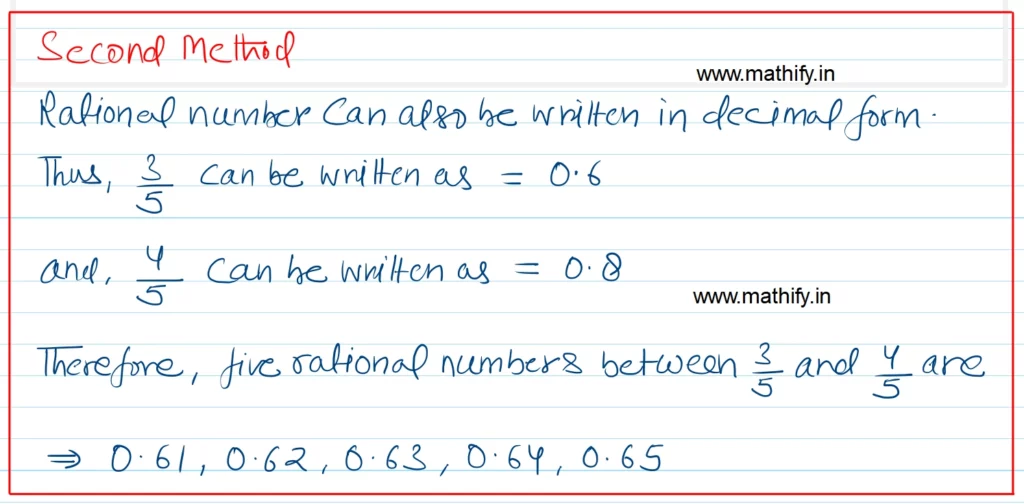 Second Method
www.mathify.in
Rational number can also be written in decimal form.
Thus, 3/5 can be written as = 0.6
and, 4/5 can be written as = 0.8
www.mathify.in
Therefore, five rational numbers between 3/5 and 4/5 are
⇒ 0.61, 0.62, 0.63, 0.64, 0.65